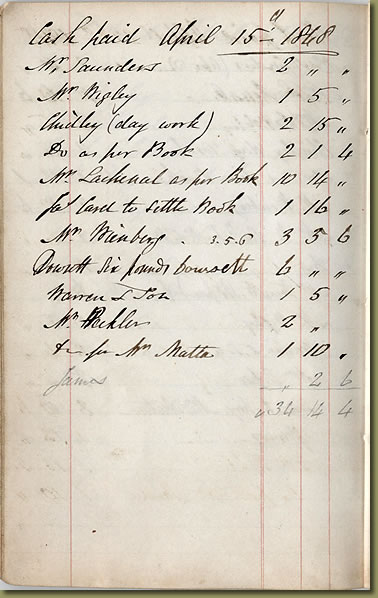 Cash paid April 15th 1848
Mr Saunders 2 " "
Mr Wigley 1 5 "
Chidley (day work) 2 15 "
Do as per Book 2 1 4
Mr Lachenal as per Book 10 14 "
Jas Card to settle Book 1 16 "
Mr Wienberg . 3.5.6 3 5 6
Dowsett six pounds Dowsett 6 " "
Warren & Son 1 5 "
Mr 2 "
for Mrs Matta 1 10 "
James " 2 6
34 14 4